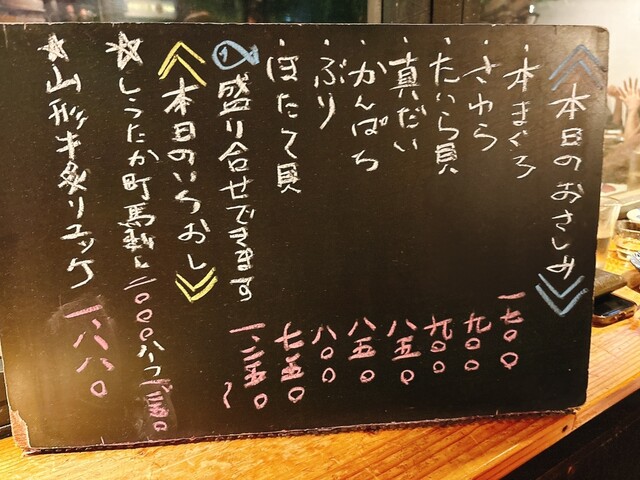 《本日のおさしみ》
・本まぐろ 一七〇〇
・さわら 九〇〇
・たいら貝 九〇〇
・真だい 八五〇
・かんぱち 八五〇
・ぶり 八〇〇
・ほたて貝 七五〇
盛り合せできます 一、二五〇〜
《本日のいちおし》
☆しらたか町馬刺し 二〇〇〇 ハーフ
☆山形牛炙りユッケ 一、八八〇